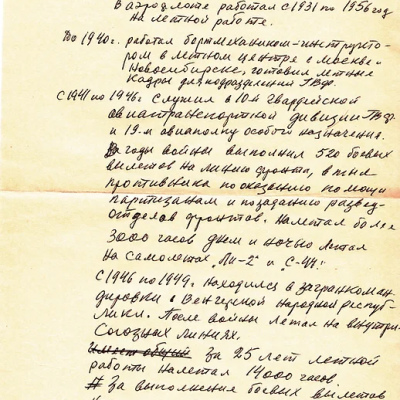 В аэрофлоте работал с 1931 по 1956 год
на летной работе.
До 1940г. работал бортмехаником-инструкто-
ром в летном центре г. Москве и
Новосибирске, готовил летные
кадры для подразделений ГВФ.
С 1941 по 1946г. Служил в 10й гвардейской
авиатранспортной дивизии ГВФ
и 19-м авиаполку особого назначения.
За годы войны выполнил 520 боевых
вылетов на линию фронта, в тыл
противника по оказанию помощи
партизанам и по заданию развед-
отделов фронтов. Налетал более
3000 часов днем и ночью летал
на самолетах "Ли-2" и "С-47".
С 1946 по 1949г. находился в загранкоман-
дировки в Венгерской народной респуб-
лики. После войны летал на внутри-
союзных линиях.
Имеет общий За 25 лет летной
работы налетал 14000 часов.
За выполнения боевых вылетов